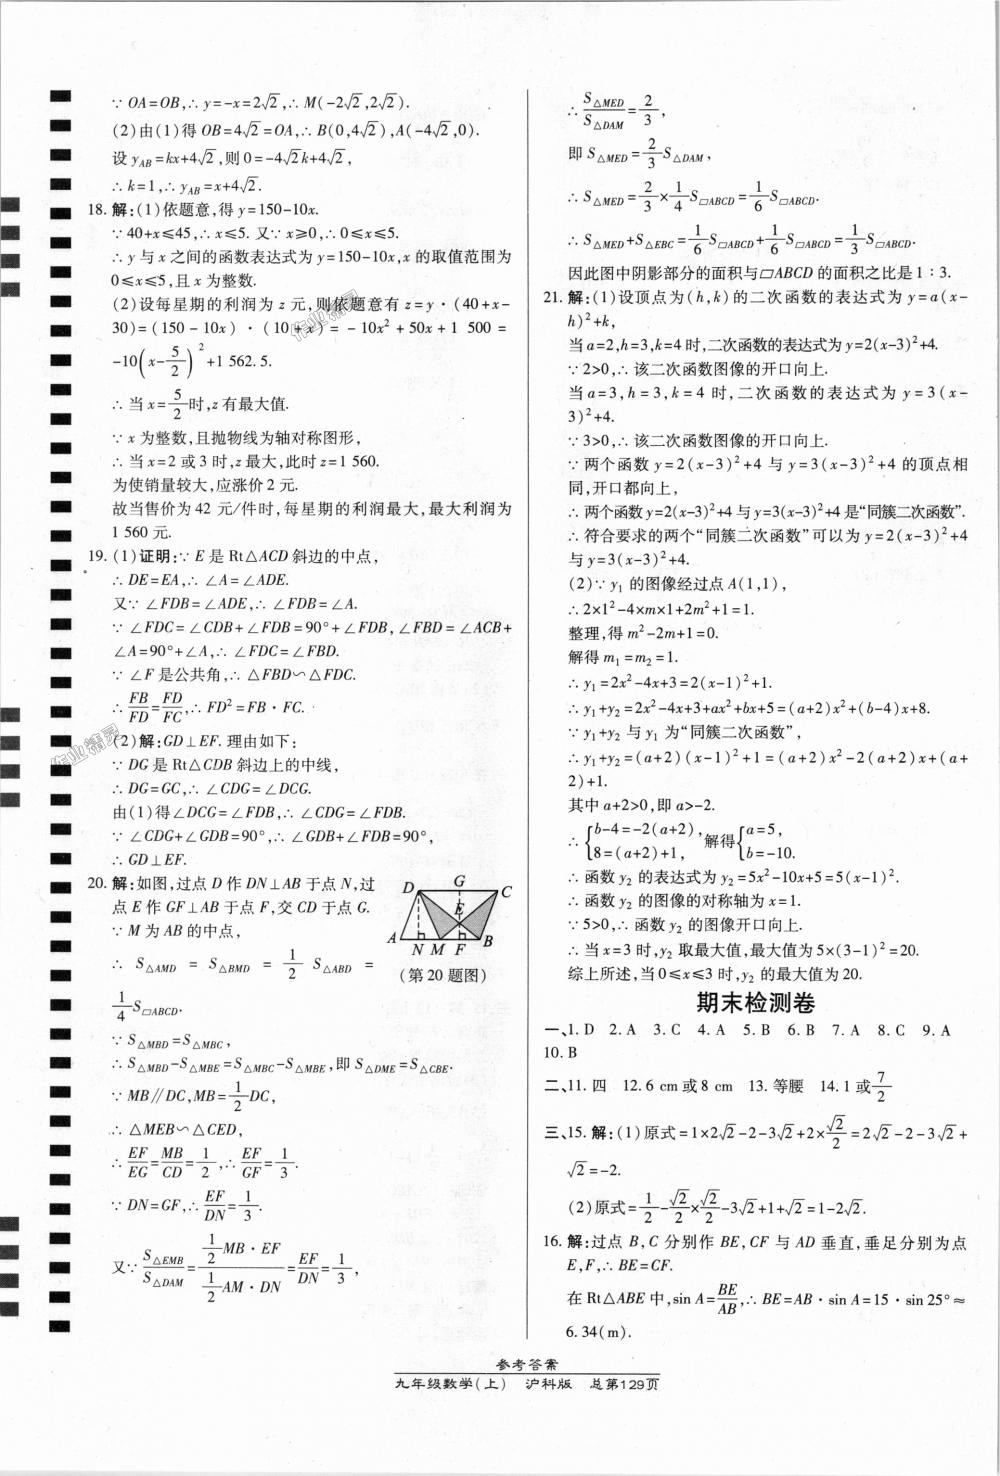 ∵ OA=OB,∴ y=-x=2√2,∴ M(-2√2,2√2).
(2)由(1)得 OB=4√2=OA,∴ B(0,4√2),A(-4√2,0).
设 y_AB=kx+4√2,则 0=-4√2k+4√2,
∴ k=1,∴ y_AB=x+4√2.
18. 解:(1)依题意,得 y=150-10x.
∵ 40+x≤45,∴ x≤5. 又∵ x≥0,∴ 0≤x≤5.
∴ y 与 x 之间的函数表达式为 y=150-10x,x 的取值范围为
0≤x≤5,且 x 为整数.
(2)设每星期的利润为 z 元,则依题意有 z=y·(40+x-
30)=(150-10x)·(10+x)=-10x²+50x+1 500=
-10(x-5/2)²+1 562.5.
∴ 当 x=5/2时,z 有最大值.
∵ x 为整数,且抛物线为轴对称图形,
∴ 当 x=2 或 3 时,z 最大,此时 z=1 560.
为使销量较大,应涨价 2 元.
故当售价为 42 元/件时,每星期的利润最大,最大利润为
1 560 元.
19. (1)证明:∵ E 是 Rt△ACD 斜边的中点,
∴ DE=EA,∴ ∠A=∠ADE.
又∵ ∠FDB=∠ADE,∴ ∠FDB=∠A.
∵ ∠FDC=∠CDB+∠FDB=90°+∠FDB,∠FBD=∠ACB+
∠A=90°+∠A,∴ ∠FDC=∠FBD.
∵ ∠F 是公共角,∴ △FBD∽△FDC.
∴ FB/FD=FD/FC,∴ FD²=FB·FC.
(2)解:GD⊥EF. 理由如下:
∵ DG 是 Rt△CDB 斜边上的中线,
∴ DG=GC,∴ ∠CDG=∠DCG.
由(1)得∠DCG=∠FDB,∴ ∠CDG=∠FDB.
∵ ∠CDG+∠GDB=90°,∴ ∠GDB+∠FDB=90°,
∴ GD⊥EF.
20. 解:如图,过点 D 作 DN⊥AB 于点 N,过
点 E 作 GF⊥AB 于点 F,交 CD 于点 G.
∵ M 为 AB 的中点,
∴ S△AMD = S△BMD = 1/2 S△ABD =
1/4 S▱ABCD.
D G C
E
A N M F B
(第 20 题图)
∵ S△MBD=S△MBC,
∴ S△MBD-S△MBE=S△MBC-S△MBE,即 S△DME=S△CBE.
∵ MB∥DC,MB=1/2DC,
∴ △MEB∽△CED,
∴ EF/EG=MB/CD=1/2,∴ EF/GF=1/3.
∵ DN=GF,∴ EF/DN=1/3.
又∵ S△EMB/S△DAM=(1/2 MB·EF)/(1/2 AM·DN)=EF/DN=1/3,
∴ S△MED/S△DAM=2/3,
即 S△MED=2/3 S△DAM,
∴ S△MED=2/3×1/4 S▱ABCD=1/6 S▱ABCD.
∴ S△MED+S△EBC=1/6 S▱ABCD+1/6 S▱ABCD=1/3 S▱ABCD.
因此图中阴影部分的面积与▱ABCD 的面积之比是 1∶3.
21. 解:(1)设顶点为(h,k)的二次函数的表达式为 y=a(x-
h)²+k,
当 a=2,h=3,k=4 时,二次函数的表达式为 y=2(x-3)²+4.
∵ 2>0,∴ 该二次函数图像的开口向上.
当 a=3,h=3,k=4 时,二次函数的表达式为 y=3(x-
3)²+4.
∵ 3>0,∴ 该二次函数图像的开口向上.
∵ 两个函数 y=2(x-3)²+4 与 y=3(x-3)²+4 的顶点相
同,开口都向上,
∴ 两个函数 y=2(x-3)²+4 与 y=3(x-3)²+4 是“同簇二次函数”.
∴ 符合要求的两个“同簇二次函数”可以为 y=2(x-3)²+4
与 y=3(x-3)²+4.
(2)∵ y₁ 的图像经过点 A(1,1),
∴ 2×1²-4×m×1+2m²+1=1.
整理,得 m²-2m+1=0.
解得 m₁=m₂=1.
∴ y₁=2x²-4x+3=2(x-1)²+1.
∴ y₁+y₂=2x²-4x+3+ax²+bx+5=(a+2)x²+(b-4)x+8.
∵ y₁+y₂ 与 y₁ 为“同簇二次函数”,
∴ y₁+y₂=(a+2)(x-1)²+1=(a+2)x²-2(a+2)x+(a+
2)+1.
其中 a+2>0,即 a>-2.
∴ {b-4=-2(a+2), 8=(a+2)+1, 解得{a=5, b=-10.
∴ 函数 y₂ 的表达式为 y₂=5x²-10x+5=5(x-1)².
∴ 函数 y₂ 的图像的对称轴为 x=1.
∵ 5>0,∴ 函数 y₂ 的图像开口向上.
∴ 当 x=3 时,y₂ 取最大值,最大值为 5×(3-1)²=20.
综上所述,当 0≤x≤3 时,y₂ 的最大值为 20.
期末检测卷
一、1. D 2. A 3. C 4. A 5. B 6. B 7. A 8. C 9. A
10. B
二、11. 四 12. 6 cm 或 8 cm 13. 等腰 14. 1 或 7/2
三、15. 解:(1)原式=1×2√2-2-3√2+2×√2/2=2√2-2-3√2+
√2=-2.
(2)原式=1/2-√2/2×√2/2-3√2+1+√2=1-2√2.
16. 解:过点 B,C 分别作 BE,CF 与 AD 垂直,垂足分别为点
E,F,∴ BE=CF.
在 Rt△ABE 中,sin A=BE/AB,∴ BE=AB·sin A=15·sin 25°≈
6.34(m).
参考答案
九年级数学(上) 沪科版 总第129页
作业精灵
作业精灵